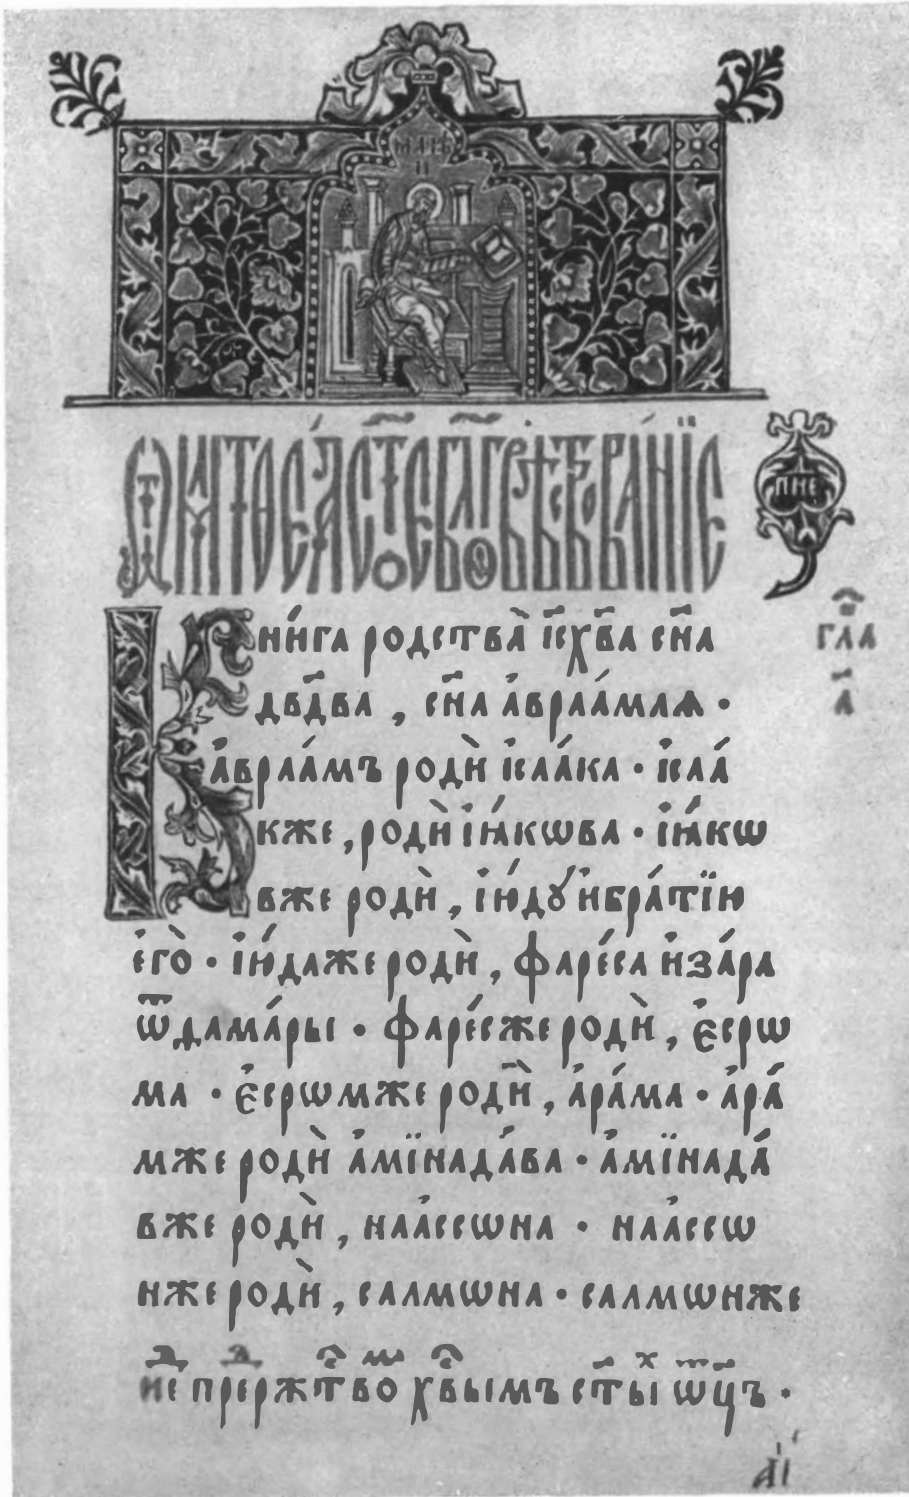 ѿ маѳеа ст҃ое бл҃говѣствованїе
пне
Кни́га родства̀ і҆с҃ хв҃а сн҃а
гл҃а
дв҃два, сн҃а а҆враа́млѧ ·
а҃
а҆враа́мъ родѝ і҆саа́ка · і҆саа́
кже, родѝ і҆а́кѡва · і҆а́кѡ
вже родѝ, і҆ю́дꙋ и҆бра́тїю
є҆го̀ · і҆ю́даже родѝ, фаре́са и҆за́ра
ѿ дама́ры · фаре́сже родѝ, є҆срѡ
ма · є҆срѡмже родѝ, а҆ра́ма · а҆ра́
мже родѝ а҆мїнада́ва · а҆мїнада́
вже родѝ, наа́ссѡна · наа́ссѡ
нже родѝ, салмѡна · салмѡнже
не пре ржⷭ҇тво хв҃ымъ ст҃ы ѿц҃ъ ·
а҃і